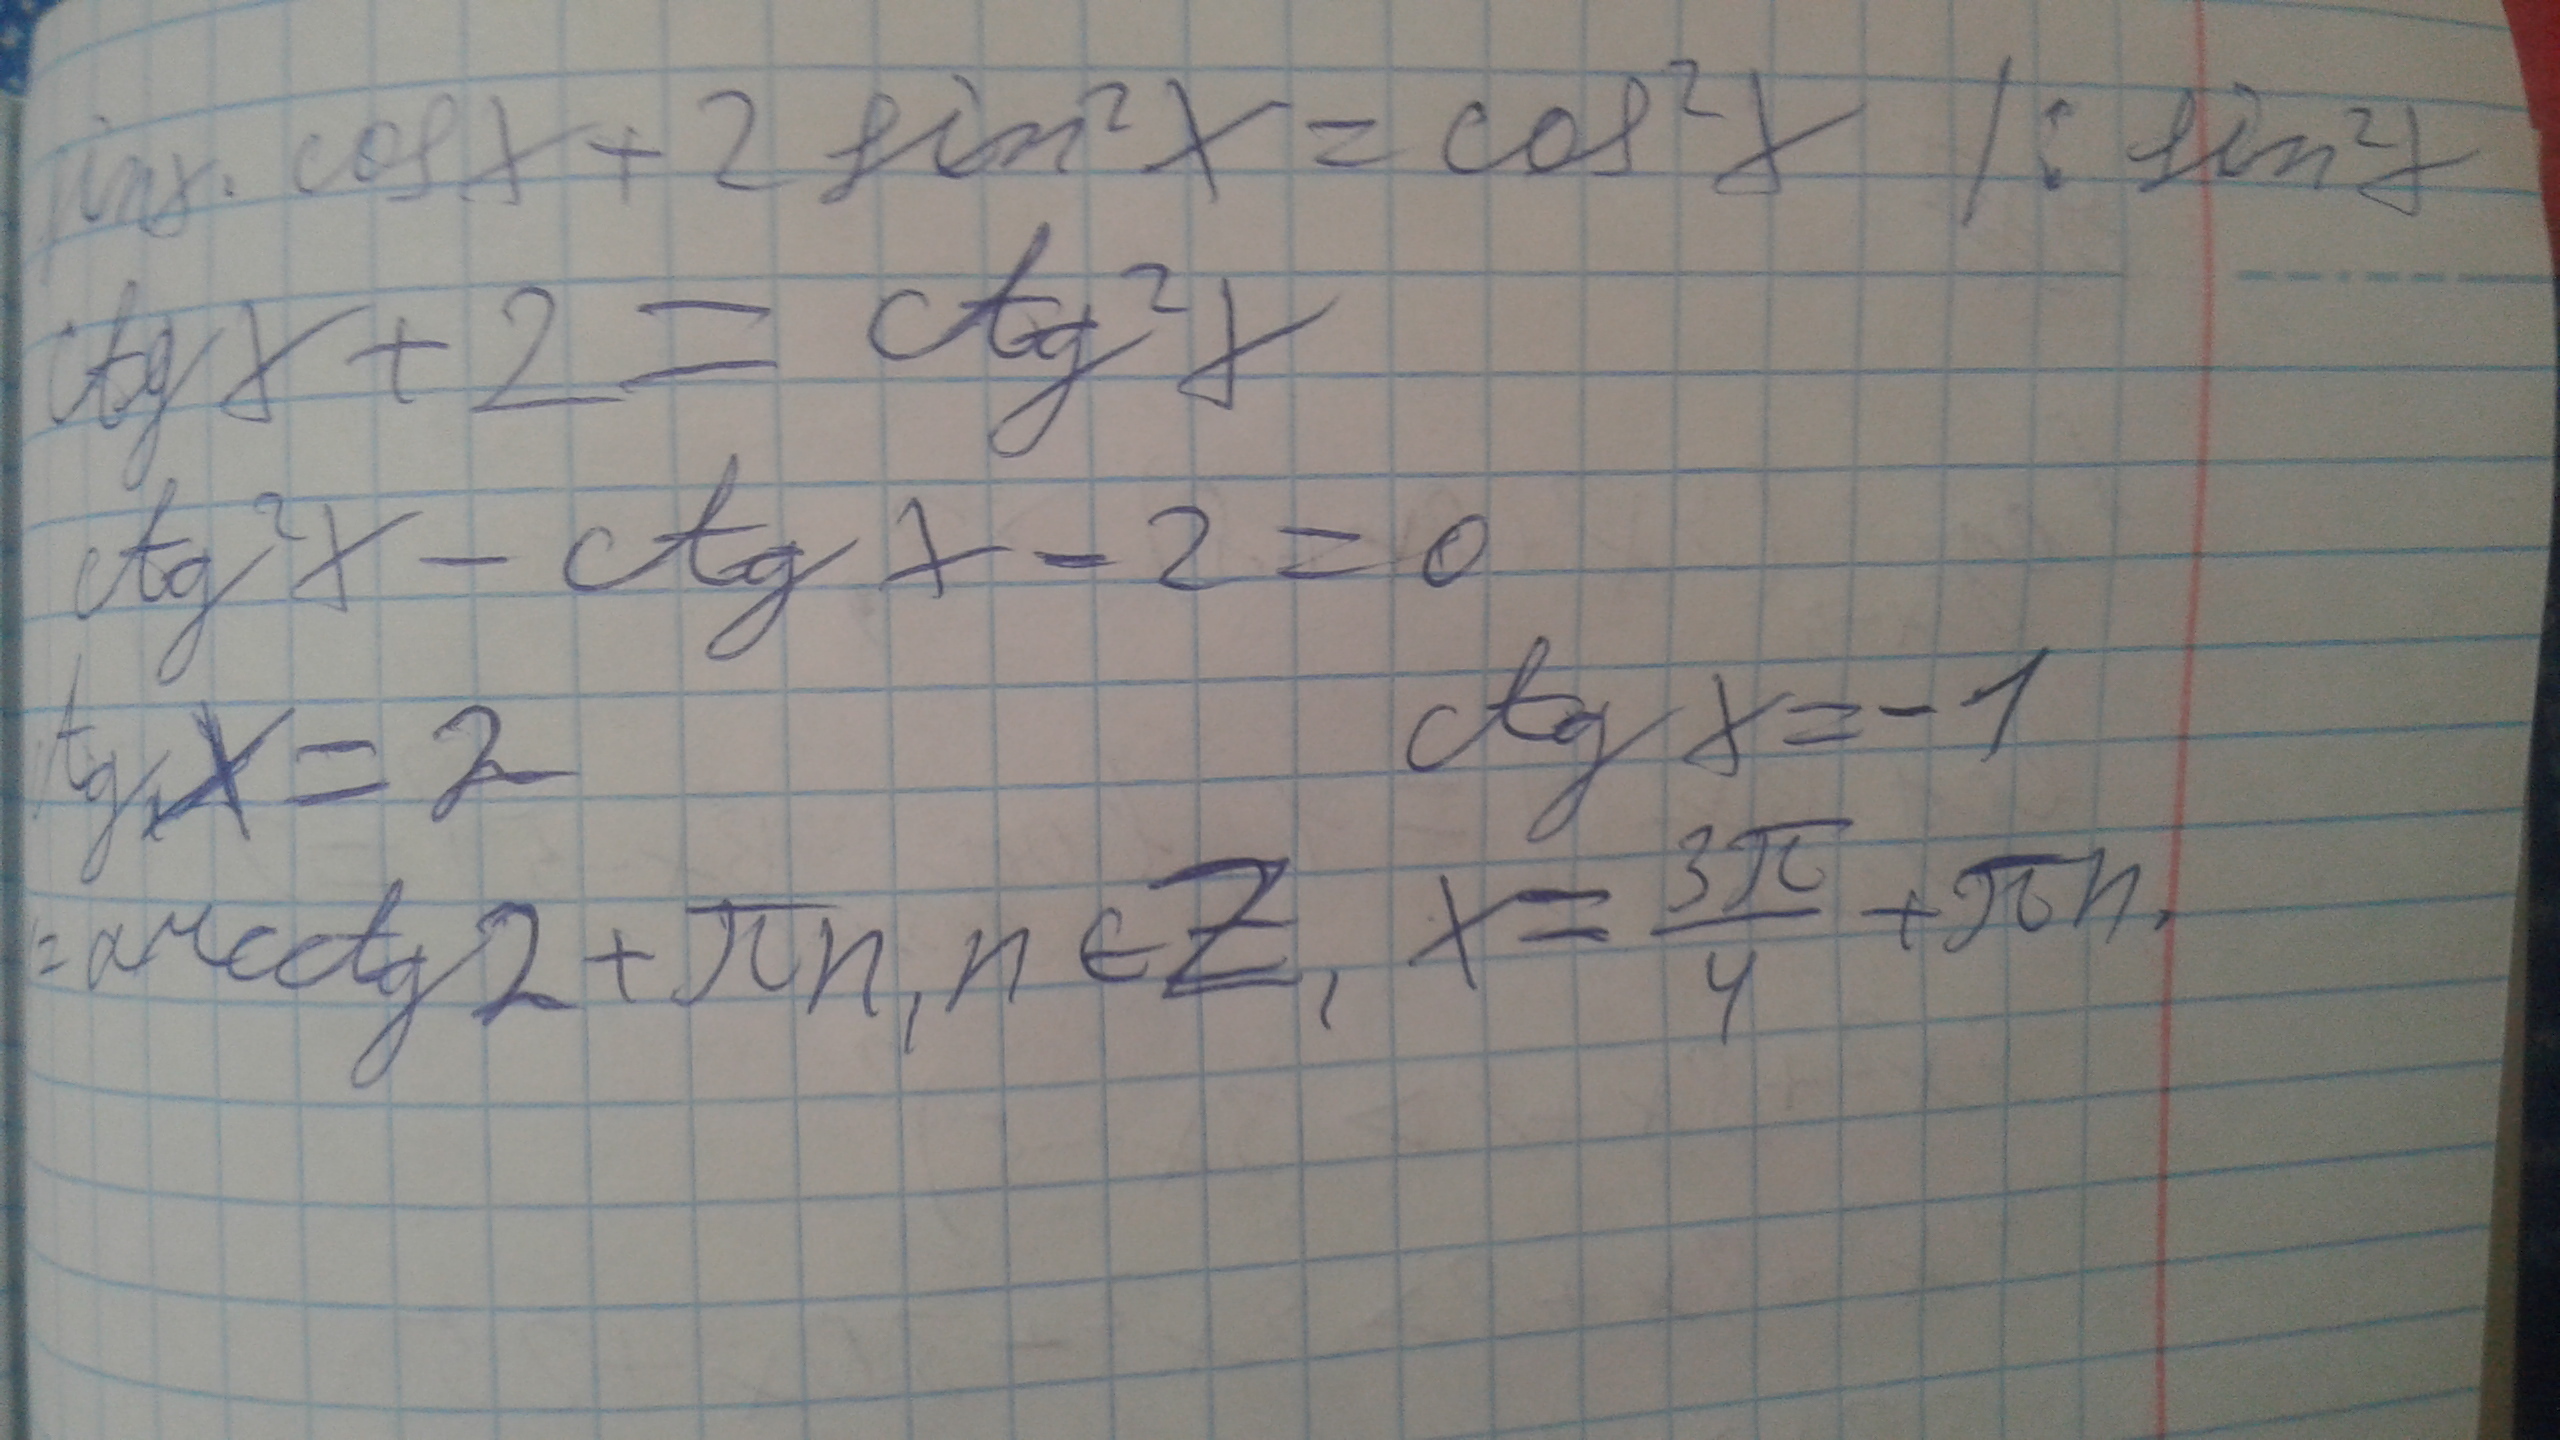 sinx · cosx + 2 sin²x = cos²x / : sin²x
ctgx + 2 = ctg²x
ctg²x - ctgx - 2 = 0
tgx = 2 ctgx = -1
= arcctg2 + πn, n ∈ Z, x = 3π/4 + πn.